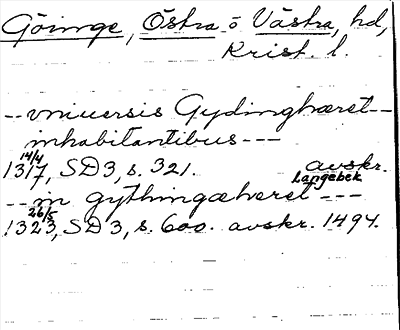 Göinge, Östra o Västra, hd,
Krist. l.
-- vniuersis Gydinghæret --
inhabitantibus ---
14/4
1317, SD 3, s. 321. avskr.
Langebek
-- m gythingæhæret ---
26/5
1323, SD 3, s. 600. avskr. 1494.